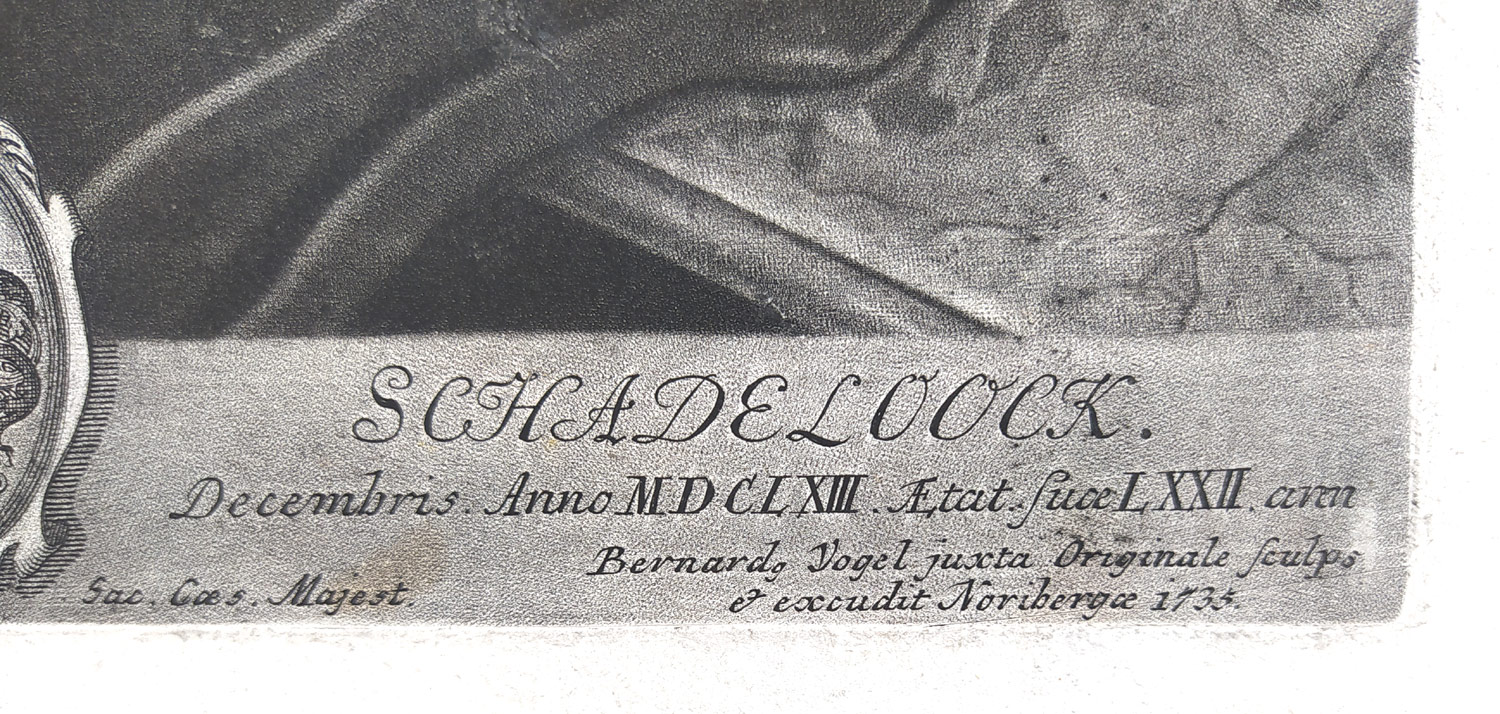 SCHADELOOCK.
Decembris. Anno MDCLXIII. Ætat. suæ LXXII. arin
Bernardꝯ Vogel juxta Originale sculps
Sac. Cæs. Majest.
& excudit Noribergæ 1735.